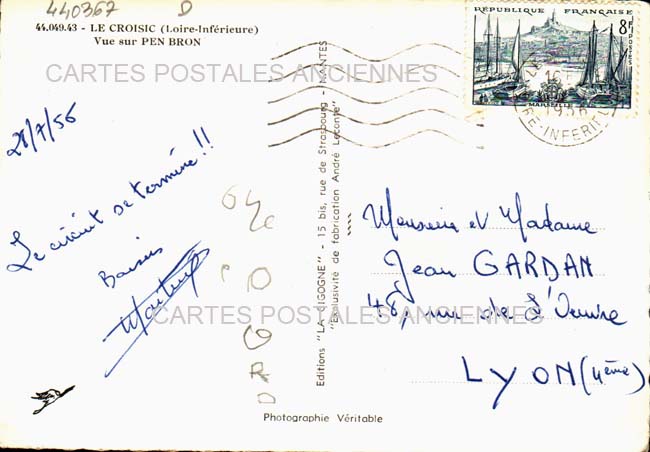 440367 D
44.049.43 - LE CROISIC (Loire-Inférieure)
Vue sur PEN BRON
CARTES POSTALES ANCIENNES
28/7/56
Le circuit se termine !!
Baisers
Editions "LA CIGOGNE" - 15 bis, rue de Strasbourg - NANTES
"Exclusivité de fabrication André Leconte"
RÉPUBLIQUE FRANÇAISE
8F
POSTES
MARSEILLE
16
1956
RE-INFERIEURE
Monsieur et Madame
Jean GARDAN
48, rue de
CARTES POSTALES ANCIENNES
LYON (4ème)
Photographie Véritable